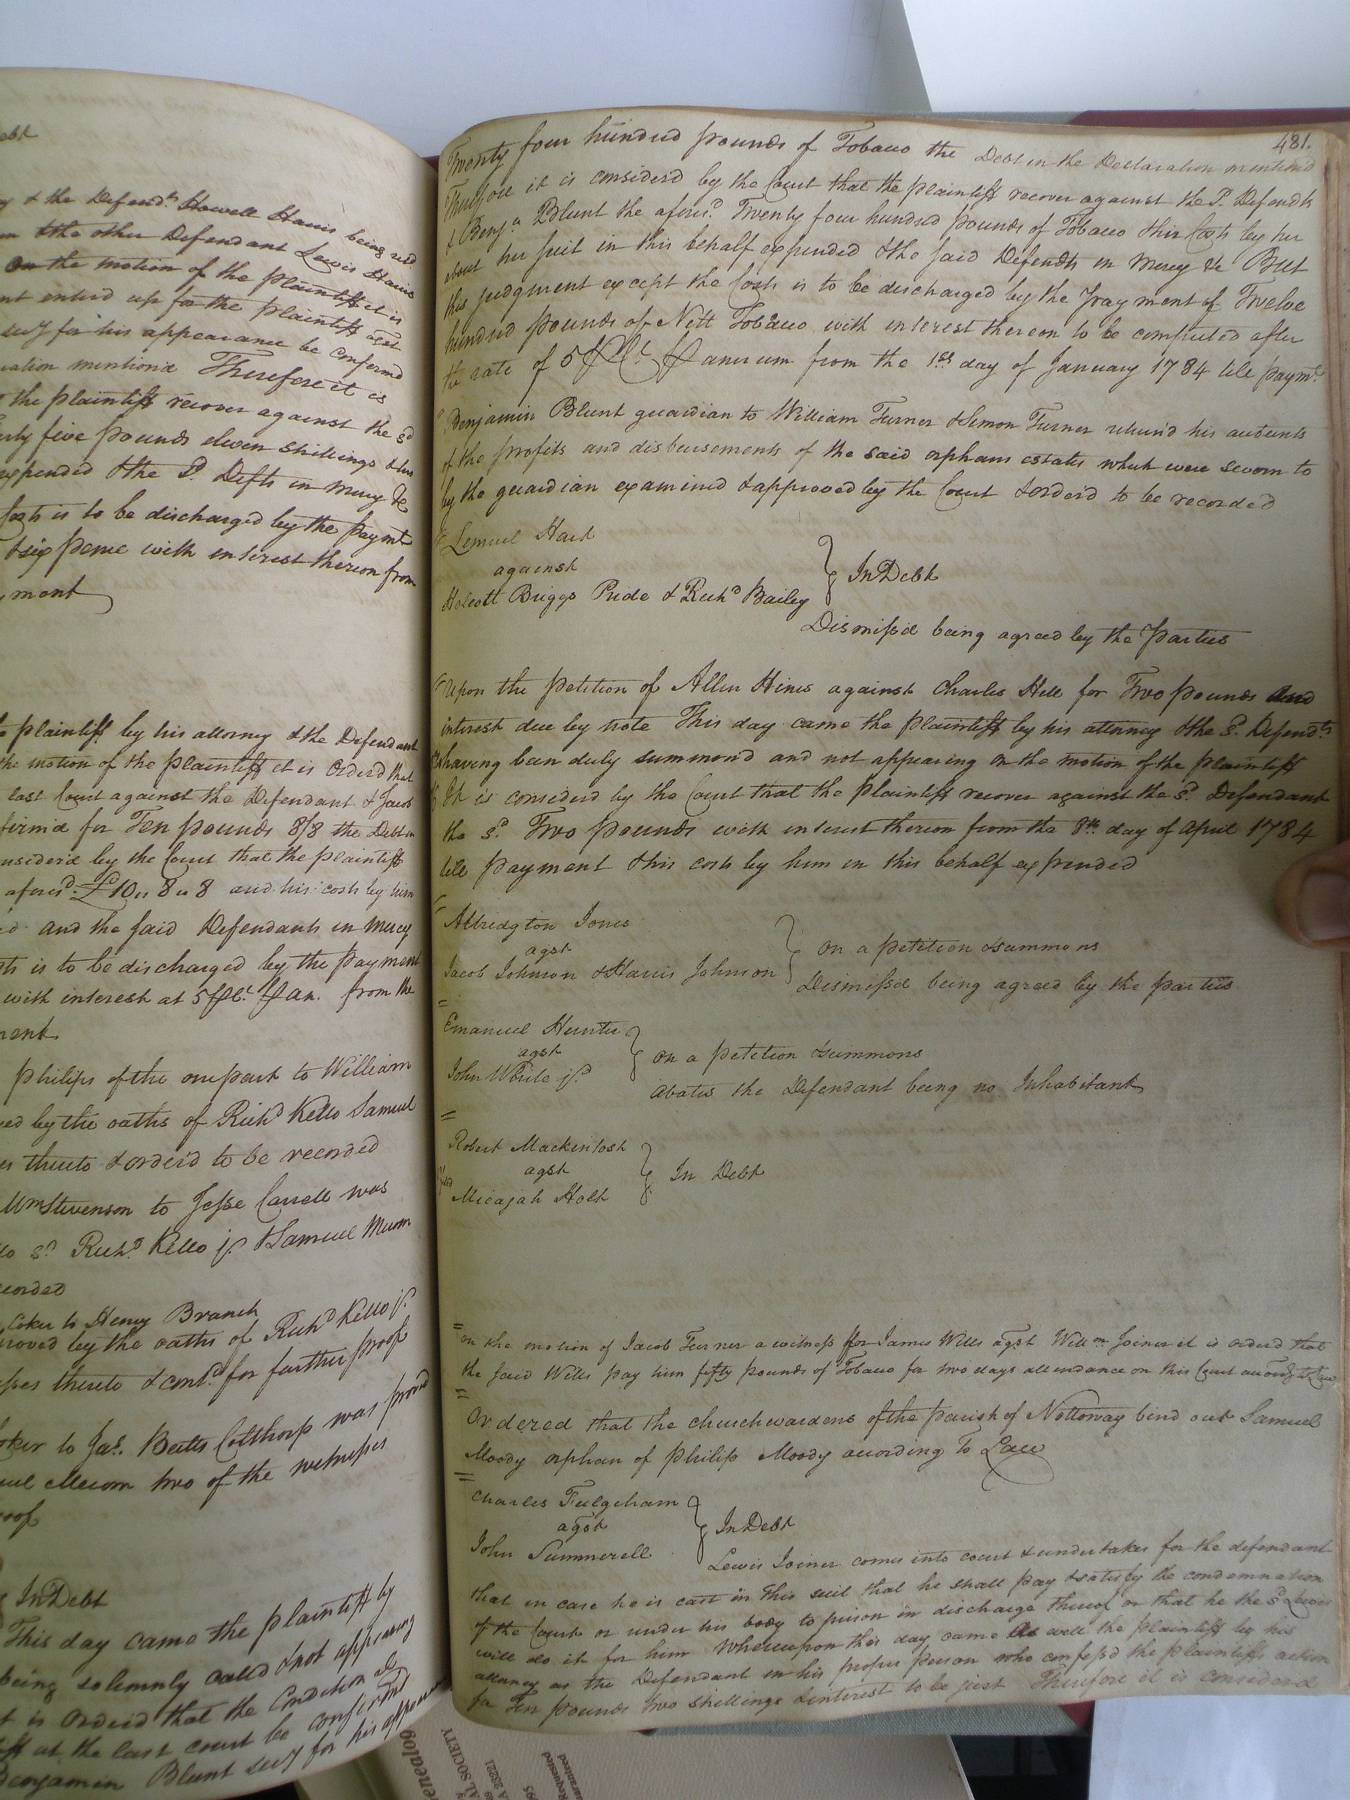 ebt
y & the Defend.t Howell Harris being
the other Defendant Lewis Harris
on the motion of the plaintiff it is
nt enterd up for the plaintiff agst
secy for his appearance be confermd
ration mention'd Therefore it is
the plaintiff recover against the sd
five pounds eleven shillings &
expended & the sd. Defts in mercy &c
Costs is to be discharged by the paymt
& six pence with interest thereon from
ment
plaintiff by his attorney & the Defendant
the motion of the plaintiff it is Orderd that
last Court against the Defendant & Jacob
firm'd for Ten pounds 8/8 the Debt in
nsider'd by the Court that the plaintiff
aforesd. £10 " 8 " 8 and his costs by him
and the said Defendants in mercy
is to be discharged by the payment
with interest at 5 P Ct. P an. from the
ment
philips of the one part to William
ved by the oaths of Richd Kello Samuel
thereto & order'd to be recorded
Wm Stevenson to Jesse Carrell was
sd. Richd. Kello jr & Samuel
corded
Coker to Henry Branch
roved by the oaths of Richd Kello jr.
sses thereto & contd. for farther proof
oker to Jas. Butts Colthorp was provd
two of the witnesses
roof
In Debt
This day came the plaintiff by
being solemnly called & not appearing
t is Order'd that the Condition al
at the last court be confirmd
Benjamin Blunt secy for his appearance
481.
Twenty four hundred pounds of Tobacco the Debt in the Declaration mentiond
Therefore it is considerd by the Court that the plaintiff recover against the sd. Defendts
& Benja. Blunt the aforesd. Twenty four hundred pounds of Tobacco & his Costs by her
about her suit in this behalf expended & the said Defendts in mercy &c But
this judgment except the Costs is to be discharged by the payment of Twelve
hundred pounds of Nett Tobacco with interest thereon to be computed after
the rate of 5 P Ct. P annum from the 1st day of January 1784 till paymt.
Benjamin Blunt guardian to William Turner & Simon Turner return'd his accounts
of the profits and disbursements of the said orphans estates which were sworn to
by the guardian examined & approved by the Court & order'd to be recorded
Lemuel Hart
against
Holcott Briggs Pride & Richd Bailey } In Debt
Dismiss'd being agreed by the parties
Upon the petition of Allen Hines against Charles Hill for Two pounds and
interest due by note This day came the plaintiff by his attorney & the sd. Defendt
having been duly summond and not appearing on the motion of the plaintiff
It is considerd by the Court that the plaintiff recover against the sd. Defendant
the sd. Two pounds with interest thereon from the 8th day of April 1784
till payment & his costs by him in this behalf expended
Albridgton Jones
agst
Jacob Johnson & Harris Johnson } on a petition & summons
Dismissed being agreed by the parties
Emanuel Hunter
agst
John White jr. } on a petition & summons
abates the Defendant being no Inhabitant
Robert Mackintosh
agst
Micajah Holt } In Debt
On the motion of Jacob Turner a witness for James Wills agst Willm Joiner it is orderd that
the said Wills pay him fifty pounds of Tobacco for two days attendance on this Court according to Law
Ordered that the churchwardens of the parish of Nottoway bind out Samuel
Moody orphan of philip Moody according To Law
Charles Fulgeham
agst
John Summerell } In Debt
Lewis Joiner comes into court & undertakes for the defendant
that in case he is cast in this suit that he shall pay & satisfy the condemnation
of the Court or render his body to prison in discharge thereof or that he the sd Lewis
will do it for him Whereupon this day came as well the plaintiff by his
attorney as the Defendant in his proper person who confess'd the plaintiffs action
for Ten pounds two shillings & interest to be just Therefore it is considerd
enealog
AL SOCIETY
A 23221
95
Requested
uaranteed